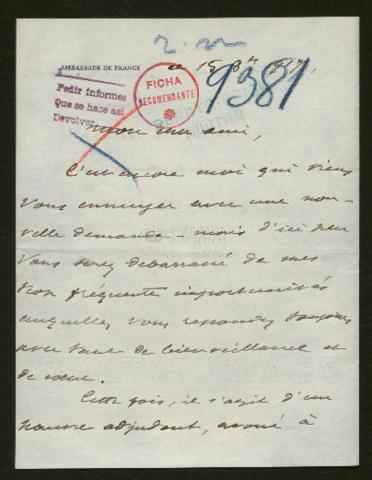 AMBASSADE DE FRANCE
ce 15 8bre 917,
9381
Pedir informes
Que se hace así
Devolver
FICHA
RECOMENDANTE
Mon cher ami,
C'est encore moi qui viens
vous ennuyer avec une nou-
velle demande, mais d'ici peu
vous serez débarrassé de mes
trop fréquentes importunités
auxquelles vous répondez toujours
avec tant de bienveillance et
de cœur.
Cette fois, il s'agit d'un
pauvre adjudant, avoué à